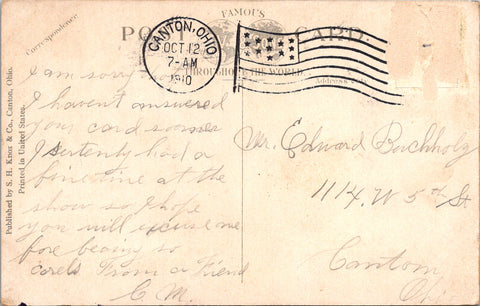 Correspondence
FAMOUS
CARD
THROUGHOUT THE WORLD
CANTON, OHIO
OCT 12
7-AM
1910
Published by S. H. Knox & Co., Canton, Ohio.
Printed in United States.
I am sorry
I havent answered
your card sooner
I sertenly had a
fine time at the
show so I hope
you will excuse me
fore beaing so
carels From a Friend
C. M.
Mr. Edward Buchholz
1114. W 5th St
Canton